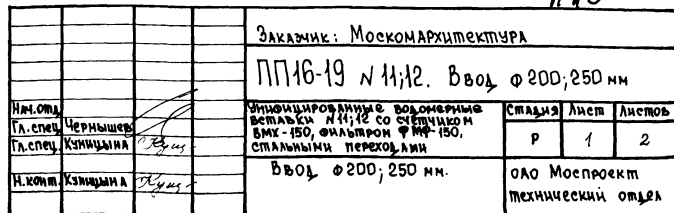 Заказчик: Москомархитектура
ПП16-19 N 11;12. Ввод φ 200; 250 мм
Нач.отд.
Гл.спец. Чернышев
Гл.спец. Куницына
Н.конт. Куницына
Унифицированные водомерные
вставки N 11;12 со счетчиком
ВМХ-150, фильтром ФМФ-150,
стальными переходами
Стадия Лист Листов
Р 1 2
Ввод φ 200; 250 мм.
ОАО Моспроект
технический отдел